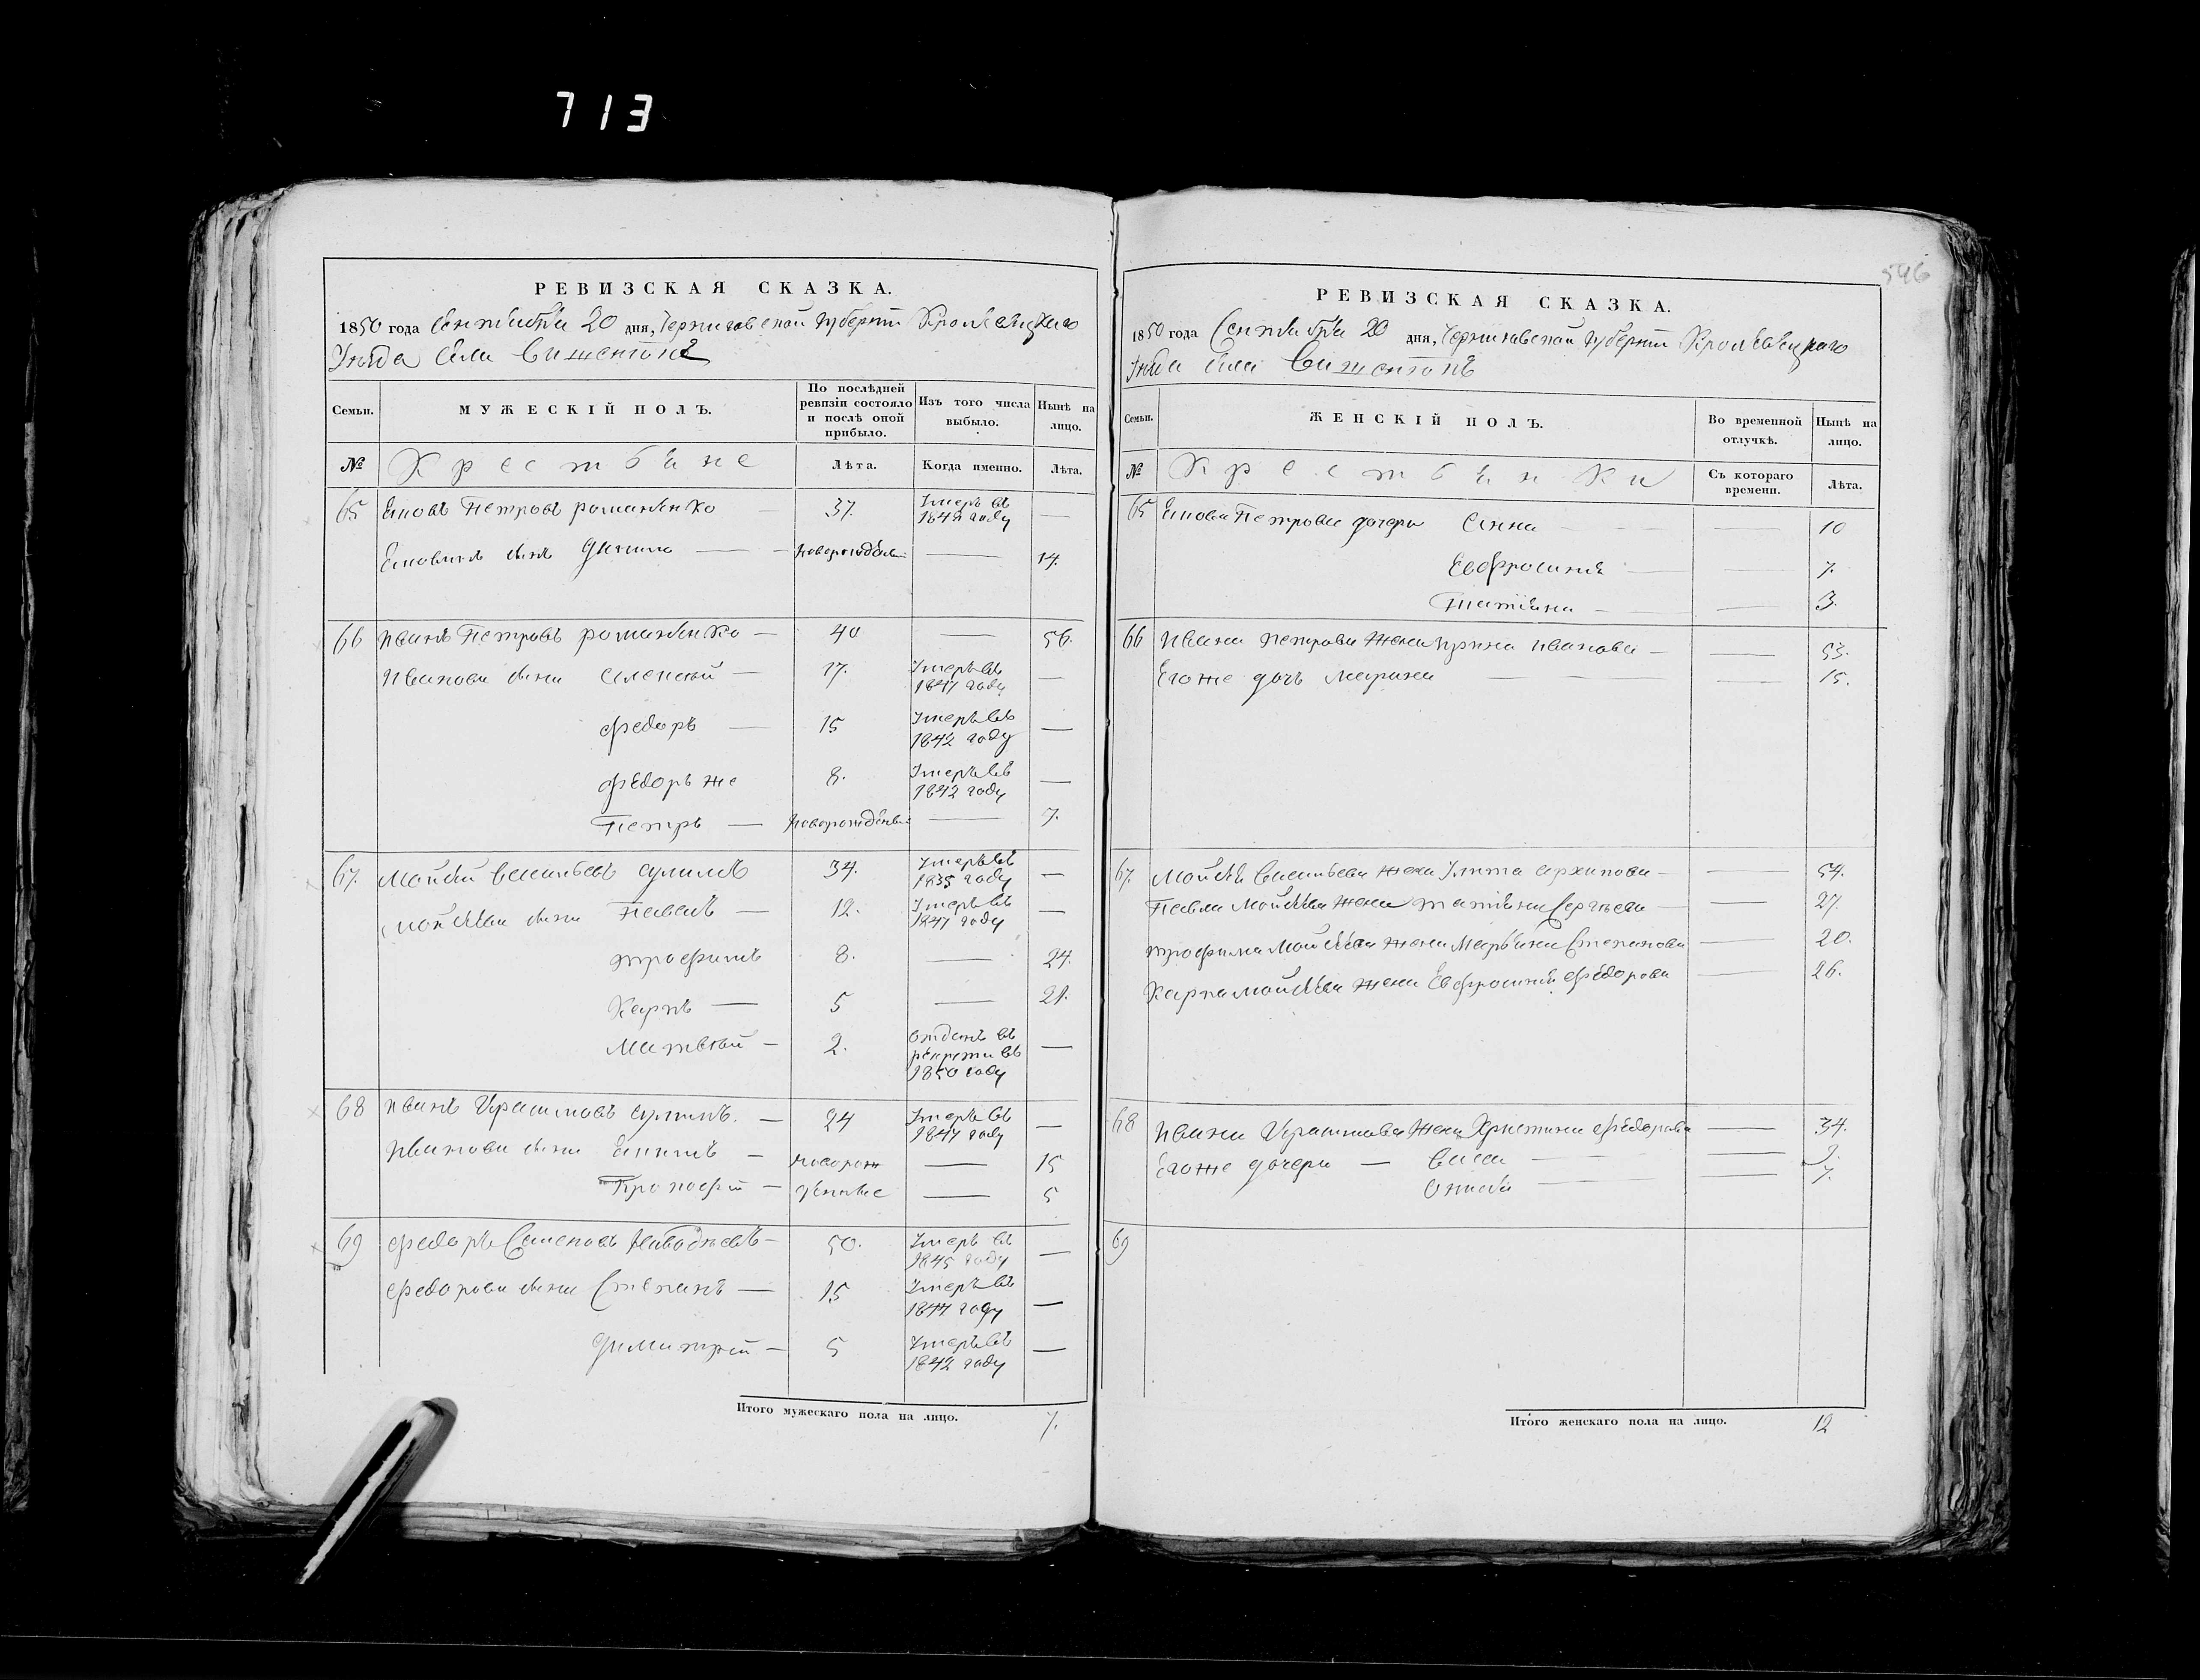 713
546
РЕВИЗСКАЯ СКАЗКА.
1850 года Сентября 20 дня, Черниговской Губерніи Кролевецкаго
Уезда Села
Семьи. МУЖЕСКІЙ ПОЛЪ. По послѣдней ревизіи состояло и послѣ оной прибыло. Изъ того числа выбыло. Нынѣ на лицо.
№ Крестьяне Лѣта. Когда именно. Лѣта.
65 Петровъ романенко — 37. Умеръ въ
году —
сынъ — — —— 14.
66 Иванъ Петровъ романенко — 40 —— 56.
Ивана сыни Алексей — 17. Умеръ въ
1847 году —
Федоръ — 15 Умеръ въ
1842 году —
Федоръ же 8. Умеръ въ
1842 году —
Петръ — новорожденый —— 7.
67. Мойсей Васильевъ 34. Умеръ въ
1835 году —
Мойсеева сыни Павелъ — 12. Умеръ въ
1847 году —
трофимъ 8. —— 24.
Карпъ — 5 —— 21.
Матвей — 2. Отданъ въ
рекруты въ
1850 году —
68 Иванъ — 24 Умеръ въ
1847 году —
Иванова сыни — новорож —— 15
Прокофій — денные —— 5
69 Федоръ Семеновъ — 50. Умеръ въ
1845 году —
Федорова сыни Степанъ — 15 Умеръ въ
1844 году —
Димитрій — 5 Умеръ въ
1842 году —
Итого мужескаго пола на лицо. 7.
РЕВИЗСКАЯ СКАЗКА.
1850 года Сентября 20 дня, Черниговской Губерніи Кролевецкаго
Уезда Села
Семьи. ЖЕНСКІЙ ПОЛЪ. Во временной отлучкѣ. Нынѣ на лицо.
№ Крестьянки Съ котораго времени. Лѣта.
65 Петрова дочери Анна — —— 10
Евфросинія — —— 7.
Татіяна — —— 3.
66 Ивана Петрова жена Ирина Иванова — —— 53.
Его же дочь Марина — — —— 15.
67. Мойсея Васильева жена Улита Архипова — —— 54.
Павла Мойсеева жена татіяна Сергеева — —— 27.
трофима Мойсеева жена Маріяна Степанова —— 20.
Карпа Мойсеева жена Евфросинія Федорова —— 26.
68 Ивана жена Христина Федорова —— 34.
Его же дочери — Васса — —— 9.
—— 7.
69
Итого женскаго пола на лицо. 12